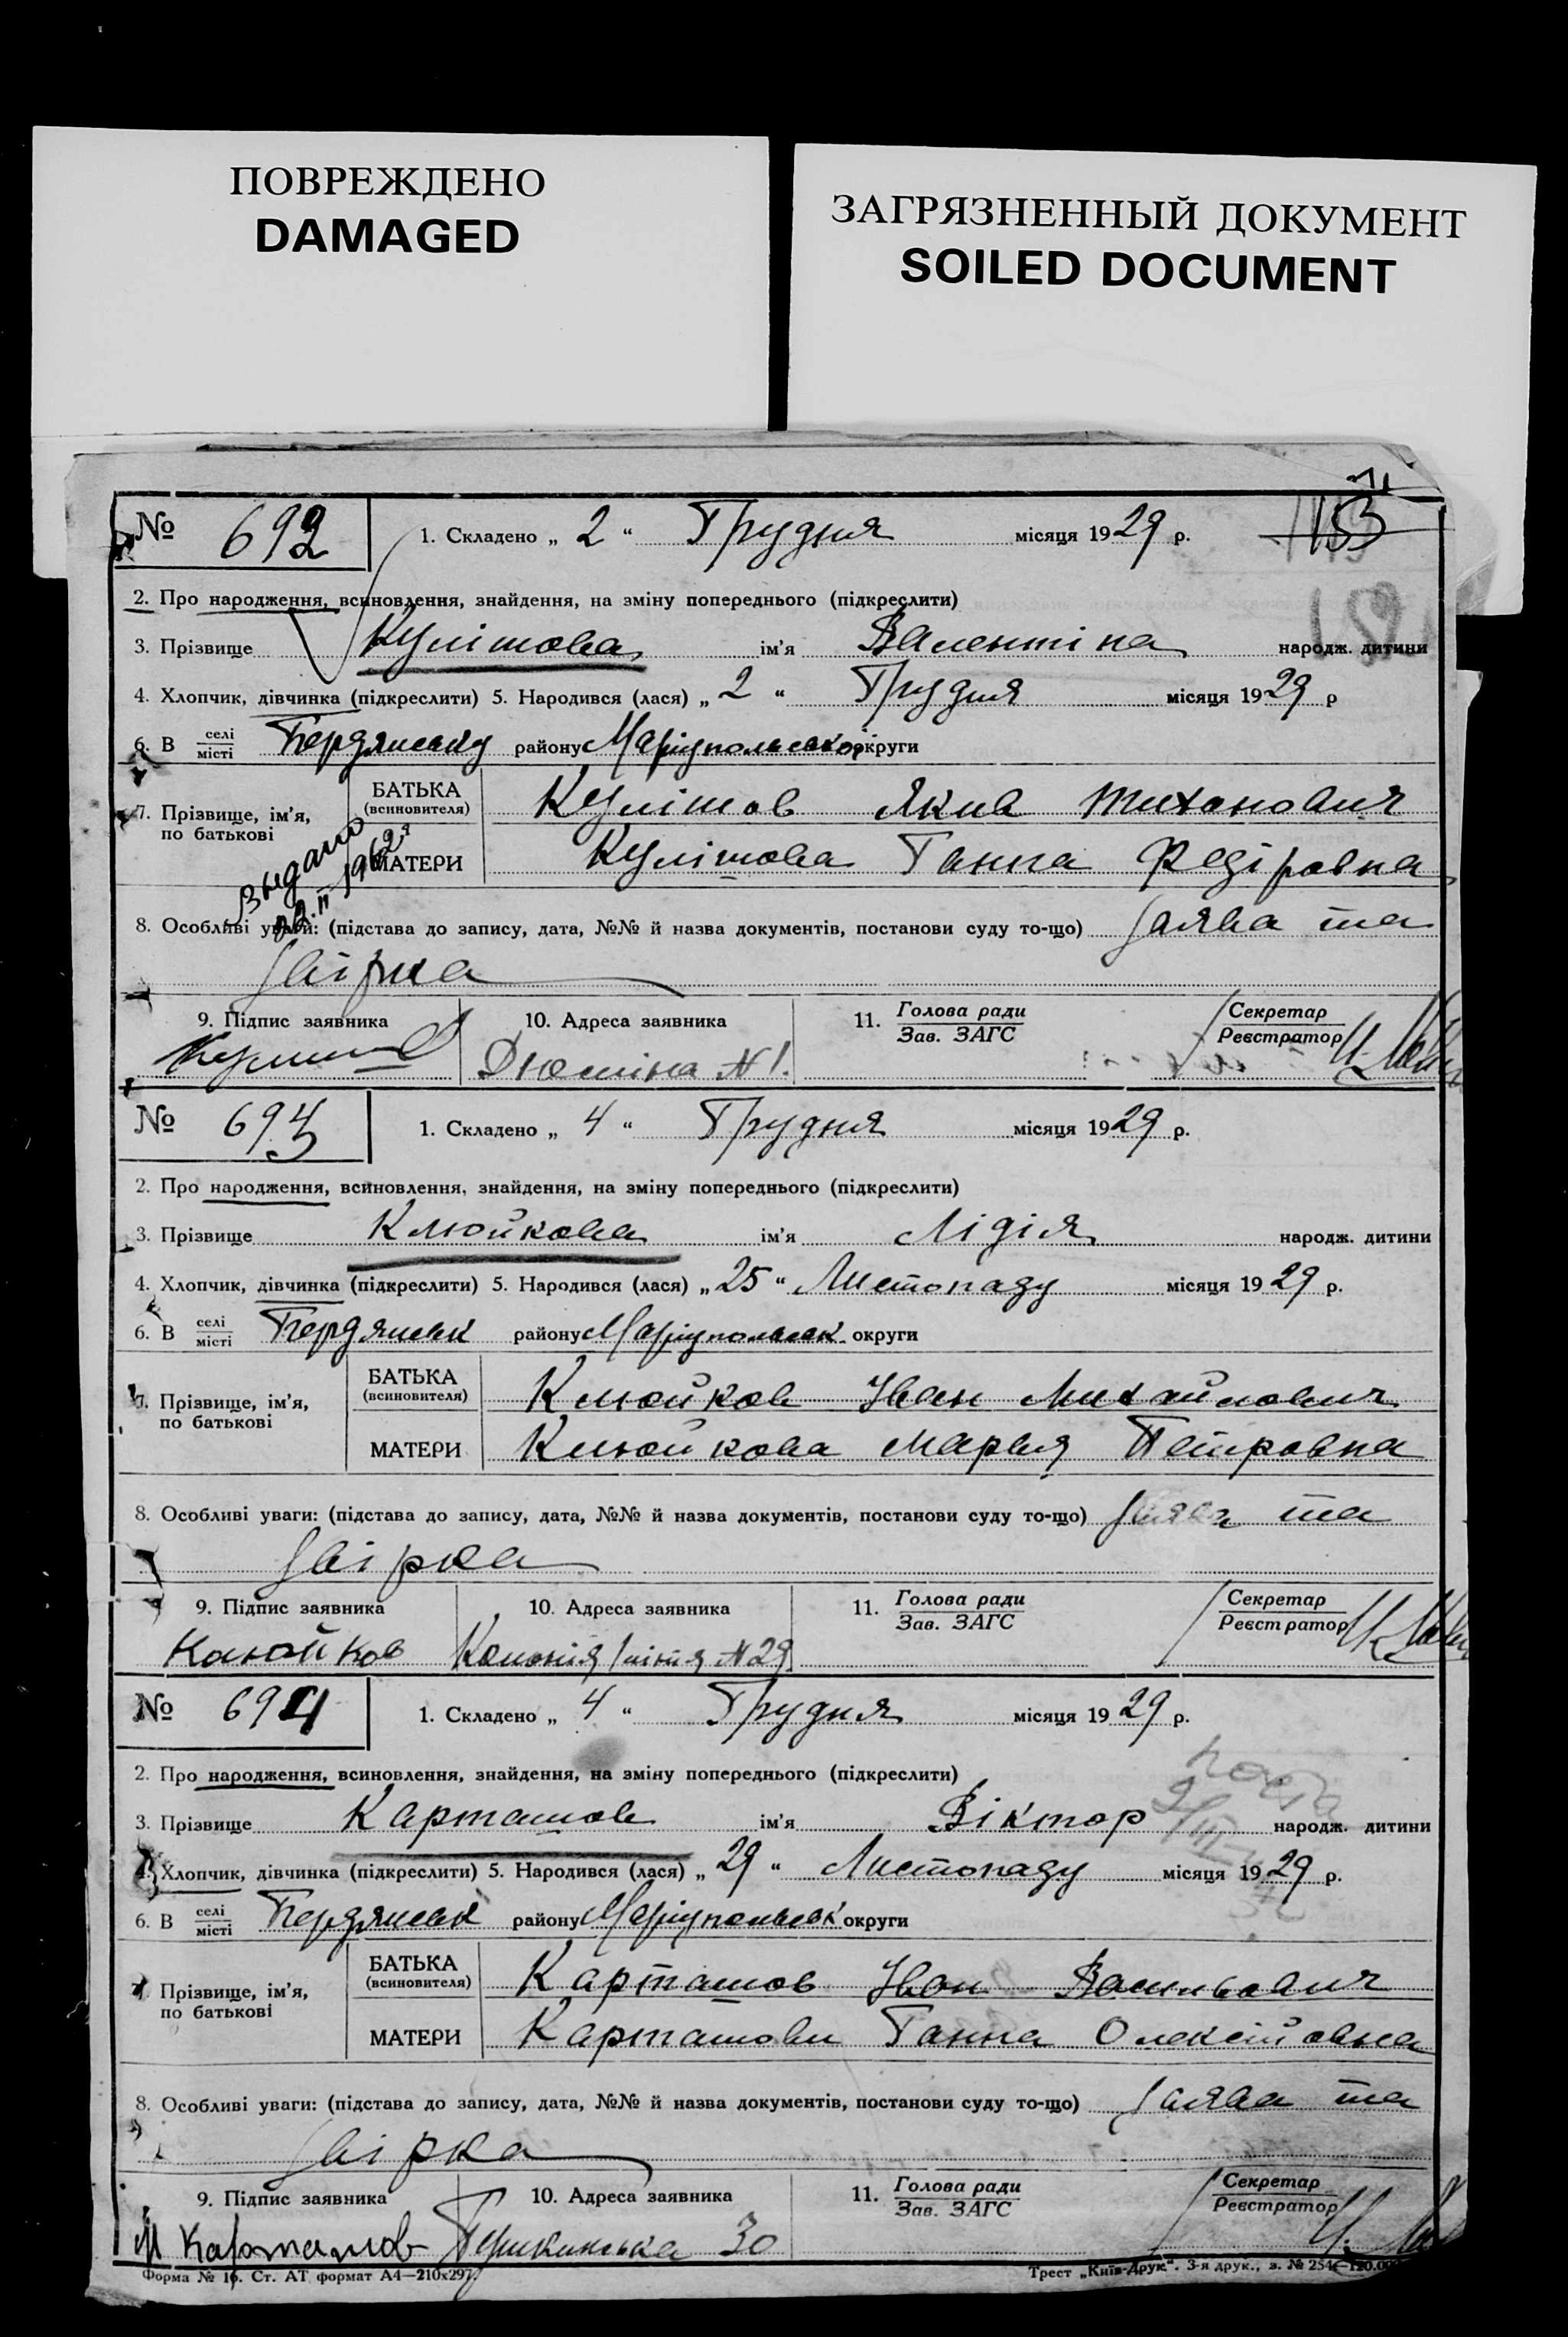 ПОВРЕЖДЕНО
DAMAGED
ЗАГРЯЗНЕННЫЙ ДОКУМЕНТ
SOILED DOCUMENT
№ 692 1. Складено „ 2 “ Грудня місяця 1929 р. 153
2. Про народження, всиновлення, знайдення, на зміну попереднього (підкреслити)
3. Прізвище Кулішова ім'я Валентіна народж. дитини
4. Хлопчик, дівчинка (підкреслити) 5. Народився (лася) „ 2 “ Грудня місяця 1929 р
6. В селі місті Бердянську району Маріупольської округи
7. Прізвище, ім'я, по батькові БАТЬКА (всиновителя) Кулішов Яків Тиханович
МАТЕРИ Кулішова Ганна Федіровна
Выдано 22.II 1962г
8. Особливі уваги: (підстава до запису, дата, №№ й назва документів, постанови суду то-що) Заява та
звірка
9. Підпис заявника 10. Адреса заявника 11. Голова ради Зав. ЗАГС Секретар Реєстратор
Дюміна № 1.
№ 693 1. Складено „ 4 “ Грудня місяця 1929 р.
2. Про народження, всиновлення, знайдення, на зміну попереднього (підкреслити)
3. Прізвище Клюйкова ім'я Лідія народж. дитини
4. Хлопчик, дівчинка (підкреслити) 5. Народився (лася) „ 25 “ Листопаду місяця 1929 р.
6. В селі місті Бердянськ району Маріупольськ округи
7. Прізвище, ім'я, по батькові БАТЬКА (всиновителя) Клюйков Іван Михайлович
МАТЕРИ Клюйкова Марья Петровна
8. Особливі уваги: (підстава до запису, дата, №№ й назва документів, постанови суду то-що) Заява та
звірка
9. Підпис заявника 10. Адреса заявника 11. Голова ради Зав. ЗАГС Секретар Реєстратор
Клюйков Колонія лінія № 29
№ 694 1. Складено „ 4 “ Грудня місяця 1929 р.
2. Про народження, всиновлення, знайдення, на зміну попереднього (підкреслити)
3. Прізвище Карташов ім'я Віктор народж. дитини
4. Хлопчик, дівчинка (підкреслити) 5. Народився (лася) „ 29 “ Листопаду місяця 1929 р.
6. В селі місті Бердянськ району Маріупольськ округи
7. Прізвище, ім'я, по батькові БАТЬКА (всиновителя) Карташов Іван Васильович
МАТЕРИ Карташова Ганна Олексійовна
8. Особливі уваги: (підстава до запису, дата, №№ й назва документів, постанови суду то-що) Заява та
звірка
9. Підпис заявника 10. Адреса заявника 11. Голова ради Зав. ЗАГС Секретар Реєстратор
И Карташов Пушкинська 30
Форма № 16. Ст. АТ формат А4—210х297. Трест „Київ-Друк“. 3-я друк., з. № 254